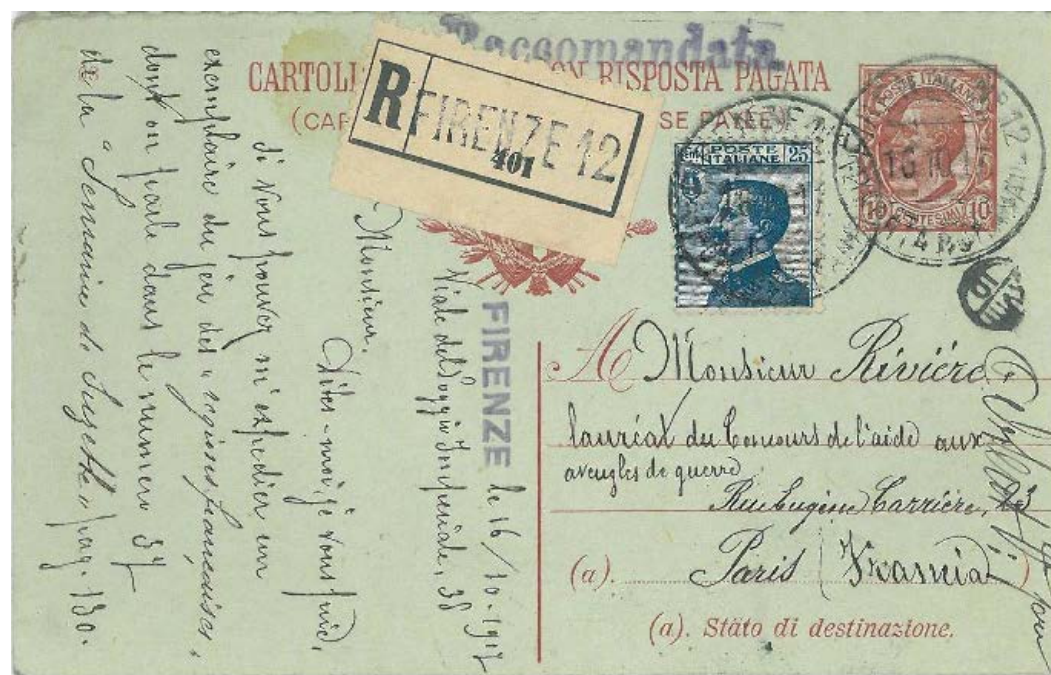 Raccomandata
CARTOLI ON RISPOSTA PAGATA
(CAR SE PAYÉE)
R FIRENZE 12
401
POSTE ITALIANE 25
POSTE ITALIANE
CENTESIMI 10
FIRENZE le 16/10-1917
Viale del Poggio Imperiale, 38
Monsieur.
Dites-moi, je vous prie,
si vous pouvez m'expedier un
exemplaire du jeu des "regions françaises"
dont on parle dans le numero 37
de la "Semaine de Suzette" pag. 130.
A Monsieur Riviére
lauréat du Concours de l'aide aux
aveugles de guerre
Rue Eugène Carrière, 23
(a). Paris (Francia)
(a). Stato di destinazione.